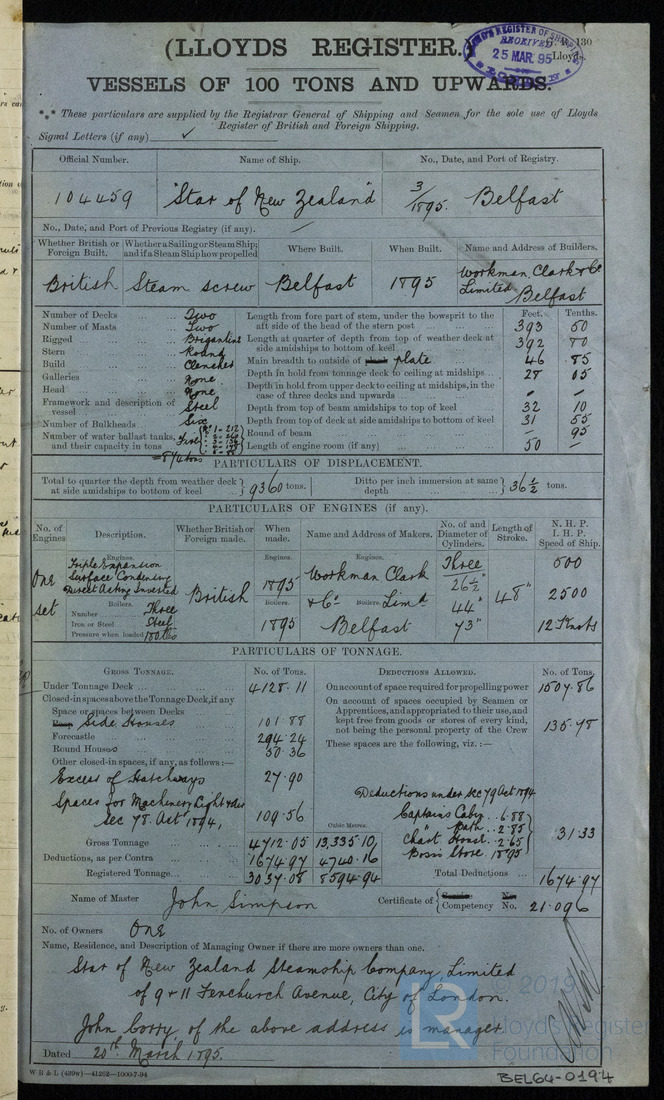 (LLOYDS REGISTER.)
LLOYD'S REGISTER OF SHIPPING
RECEIVED
25 MAR. 95
130
Lloyds.
VESSELS OF 100 TONS AND UPWARDS.
*** These particulars are supplied by the Registrar General of Shipping and Seamen for the sole use of Lloyds
Register of British and Foreign Shipping.
Signal Letters (if any) ✓
Official Number. Name of Ship. No., Date, and Port of Registry.
104459 "Star of New Zealand" 3/1895. Belfast
No., Date, and Port of Previous Registry (if any). —
Whether British or Foreign Built. Whether a Sailing or Steam Ship; and if a Steam Ship how propelled Where Built. When Built. Name and Address of Builders.
British Steam screw Belfast 1895 Workman, Clark & Co Limited Belfast
Number of Decks Two
Number of Masts Two
Rigged Brigantine
Stern Round
Build Clencher
Galleries None
Head None
Framework and description of vessel Steel
Number of Bulkheads Six
Number of water ballast tanks, and their capacity in tons Five
= 874 tons
Feet. Tenths.
Length from fore part of stem, under the bowsprit to the aft side of the head of the stern post 393 60
Length at quarter of depth from top of weather deck at side amidships to bottom of keel 392 70
Main breadth to outside of plate 46 85
Depth in hold from tonnage deck to ceiling at midships 28 05
Depth in hold from upper deck to ceiling at midships, in the case of three decks and upwards - -
Depth from top of beam amidships to top of keel 32 10
Depth from top of deck at side amidships to bottom of keel 31 55
Round of beam — 95
Length of engine room (if any) 50 —
PARTICULARS OF DISPLACEMENT.
Total to quarter the depth from weather deck at side amidships to bottom of keel } 9360 tons. Ditto per inch immersion at same depth } 36½ tons.
PARTICULARS OF ENGINES (if any).
No. of Engines Description. Whether British or Foreign made. When made. Name and Address of Makers. No. of and Diameter of Cylinders. Length of Stroke. N. H. P. I. H. P. Speed of Ship.
One set
Engines.
Triple Expansion
Surface Condensing
Direct Acting Inverted
Boilers.
Number Three
Iron or Steel Steel
Pressure when loaded 180 lbs
British
Engines. 1895
Boilers. 1895
Engines.
Workman Clark
& Co Boilers. Limd
Belfast
Three
26½"
44"
73"
48"
500
2500
12 Knots
PARTICULARS OF TONNAGE.
GROSS TONNAGE. No. of Tons.
Under Tonnage Deck 4128.11
Closed-in spaces above the Tonnage Deck, if any
Space or spaces between Decks
Side Houses 101.88
Forecastle 294.24
Round Houses 50.36
Other closed-in spaces, if any, as follows:—
Excess of Hatchways 27.90
Spaces for Machinery Light & Air
Sec 78. Act 1894, 109.56
Cubic Metres.
Gross Tonnage 4712.05 13,335.10,
Deductions, as per Contra 1674.97 4740.16
Registered Tonnage 3037.08 8594.94
DEDUCTIONS ALLOWED. No. of Tons.
On account of space required for propelling power 1507.86
On account of spaces occupied by Seamen or Apprentices, and appropriated to their use, and kept free from goods or stores of every kind, not being the personal property of the Crew 135.78
These spaces are the following, viz.:—
Deductions under Sec 79 Act 1894
Captains Cabn.. 6.88
" Bath.. 2.85
Chart House.. 2.65
Bosns Store. 18.95
31.33
Total Deductions 1674.97
Name of Master John Simpson Certificate of { Service No. Competency No. 21.096
No. of Owners One
Name, Residence, and Description of Managing Owner if there are more owners than one.
Star of New Zealand Steamship Company, Limited
of 9 & 11 Fenchurch Avenue, City of London.
John Corry, of the above address is manager
Dated 20th March 1895.
W B & L (439w)—41262—1000-7-94
LR
© 2019
Lloyd's Register
Foundation
BEL64-0194